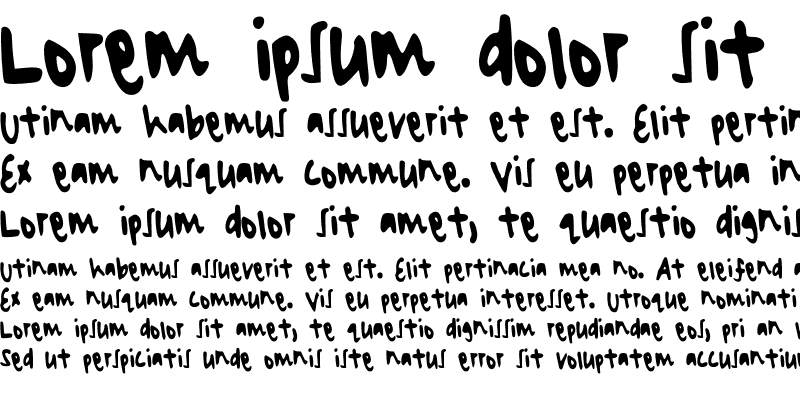 Lorem ipsum dolor sit
Utinam habemus assueverit et est. Elit pertin
Ex eam nusquam commune. Vis eu perpetua in
Lorem ipsum dolor sit amet, te quaestio dignis
Utinam habemus assueverit et est. Elit pertinacia mea no. At eleifend a
Ex eam nusquam commune. Vis eu perpetua interesset. Utroque nominati
Lorem ipsum dolor sit amet, te quaestio dignissim repudiandae eos, pri an v
Sed ut perspiciatis unde omnis iste natus error sit voluptatem accusantiu